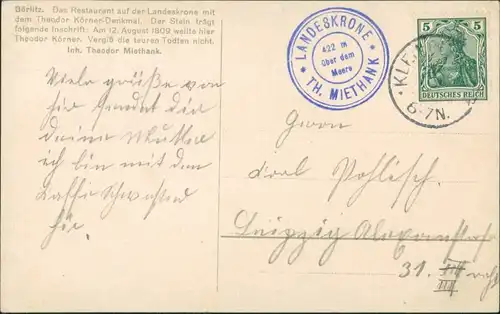 Görlitz. Das Restaurant auf der Landeskrone mit
dem Theodor Körner-Denkmal. Der Stein trägt
folgende Inschrift: Am 12. August 1809 weilte hier
Theodor Körner. Vergiß die teuren Todten nicht.
Inh. Theodor Miethank.
LANDESKRONE
422 m
über dem
Meere
TH. MIETHANK
5 5
DEUTSCHES REICH
KLE
6-7N.
Viele Grüße von
hier sendet dir
deine Mutter
ich bin mit den
Kaffe Schwestern
hier.
Herrn
Pohlisch.
Leipzig
31. III